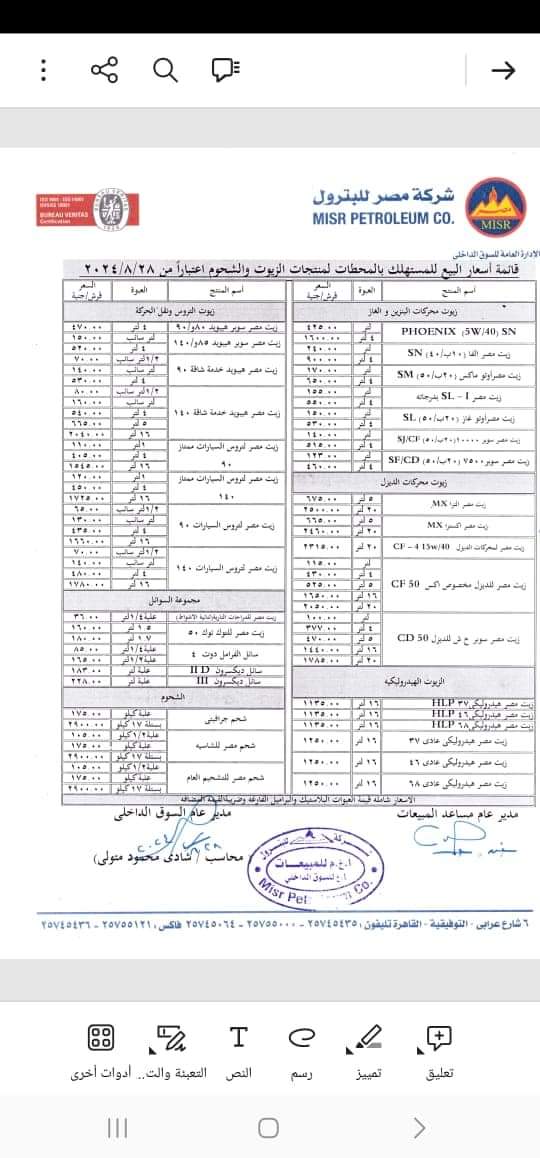 شركة مصر للبترول
MISR PETROLEUM CO.
MISR
ISO 9001 - ISO 14001
BUREAU VERITAS
Certification
الإدارة العامة للسوق الداخلى
قائمة أسعار البيع للمستهلك بالمحطات لمنتجات الزيوت والشحوم اعتباراً من ٢٠٢٤/٨/٢٨
اسم المنتج العبوة السعر قرش/جنية
زيوت محركات البنزين و الغاز
PHOENIX (5W/40) SN لتر ٤٢٥.٠٠
٤ لتر ١٦٠٠.٠٠
SN لتر ٢٤٠.٠٠
٤ لتر ٩٠٠.٠٠
زيت مصر اوتو ماكس (٢٠ب/٥٠) SM لتر ١٧٠.٠٠
٤ لتر ٦٥٠.٠٠
زيت مصر SL - I بدرجاته
زيت مصر اوتو غاز (٢٠ب/٥٠) SL لتر ١٥٠.٠٠
٤ لتر ٥٣٠.٠٠
زيت مصر سوبر ١٠٠٠٠ (٢٠ب/٥٠) SJ/CF لتر ١٤٠.٠٠
٤ لتر ٥١٥.٠٠
زيت مصر سوبر ٧٥٠٠ (٢٠ب/٥٠) SF/CD لتر ١٢٣.٠٠
٤ لتر ٤٦٠.٠٠
زيوت محركات الديزل
زيت مصر الترا MX ٥ لتر ٦٧٥.٠٠
٢٠ لتر ٢٥٠٠.٠٠
زيت مصر اكسترا MX ٥ لتر ٦٦٥.٠٠
٢٠ لتر ٢٤٦٠.٠٠
زيت مصر لمحركات الديزل CF - 4 15w/40 ٢٠ لتر ٢٣١٥.٠٠
زيت مصر للديزل مخصوص اكس CF 50 لتر ١١٥.٠٠
٤ لتر ٤٣٠.٠٠
٥ لتر ٥٢٥.٠٠
١٦ لتر ١٦٥٠.٠٠
٢٠ لتر ٢٠٥٠.٠٠
زيت مصر سوبر خ ش للديزل CD 50 لتر ١٠٠.٠٠
٤ لتر ٣٧٧.٠٠
٥ لتر ٤٧٠.٠٠
١٦ لتر ١٤٤٠.٠٠
٢٠ لتر ١٧٨٥.٠٠
الزيوت الهيدروليكيه
زيت مصر هيدروليكى ٣٧ HLP ١٦ لتر ١١٣٥.٠٠
زيت مصر هيدروليكى ٤٦ HLP ١٦ لتر ١١٣٥.٠٠
زيت مصر هيدروليكى ٦٨ HLP ١٦ لتر ١١٣٥.٠٠
زيت مصر هيدروليكى عادى ٣٧ ١٦ لتر ١٢٥٠.٠٠
زيت مصر هيدروليكى عادى ٤٦ ١٦ لتر ١٢٥٠.٠٠
زيت مصر هيدروليكى عادى ٦٨ ١٦ لتر ١٢٥٠.٠٠
اسم المنتج العبوة السعر قرش/جنية
زيوت التروس ونقل الحركة
زيت مصر سوبر هيبويد ٨٠و/٩٠ ٤ لتر ٤٧٠.٠٠
زيت مصر سوبر هيبويد ٨٥و/١٤٠ لتر سائب ١٥٠.٠٠
٤ لتر ٥٢٠.٠٠
زيت مصر هيبويد خدمة شاقة ٩٠ ١/٢ لتر سائب ٧٠.٠٠
لتر سائب ١٤٠.٠٠
٤ لتر ٥٣٠.٠٠
زيت مصر هيبويد خدمة شاقة ١٤٠ ١/٢ لتر سائب ٨٠.٠٠
لتر سائب ١٦٠.٠٠
٤ لتر ٥٤٠.٠٠
٥ لتر ٦٦٥.٠٠
١٦ لتر ٢٠٤٠.٠٠
زيت مصر لتروس السيارات ممتاز ٩٠ ١ لتر ١١٠.٠٠
٤ لتر ٤٠٥.٠٠
١٦ لتر ١٥٤٥.٠٠
زيت مصر لتروس السيارات ممتاز ١٤٠ ١ لتر ١٢٠.٠٠
٤ لتر ٤٥٠.٠٠
١٦ لتر ١٧٢٥.٠٠
زيت مصر لتروس السيارات ٩٠ ١/٢ لتر سائب ٦٥.٠٠
لتر سائب ١٣٠.٠٠
٤ لتر ٤٣٥.٠٠
١٦ لتر ١٦٦٠.٠٠
زيت مصر لتروس السيارات ١٤٠ ١/٢ لتر سائب ٧٠.٠٠
لتر سائب ١٤٠.٠٠
٤ لتر ٤٨٠.٠٠
١٦ لتر ١٧٨٠.٠٠
مجموعة السوائل
علبة ١/٤ لتر ٣٦.٠٠
زيت مصر للتوك توك ٥٠ ١.٥ لتر ١٦٠.٠٠
١.٧ لتر ١٨٠.٠٠
سائل الفرامل دوت ٤ علبة ١/٤ لتر ٨٥.٠٠
علبة ١/٢ لتر ١٦٥.٠٠
سائل ديكسرون II D علبة لتر ١٨٣.٠٠
سائل ديكسرون III علبة لتر ٢٢٨.٠٠
الشحوم
شحم جرافيتى علبة كيلو ١٧٥.٠٠
بستلة ١٧ كيلو ٢٩٠٠.٠٠
شحم مصر للشاسيه علبة ١/٢ كيلو ١٠٥.٠٠
علبة كيلو ١٧٥.٠٠
بستلة ١٧ كيلو ٢٩٠٠.٠٠
شحم مصر للتشحيم العام علبة ١/٢ كيلو ١٠٥.٠٠
علبة كيلو ١٧٥.٠٠
بستلة ١٧ كيلو ٢٩٠٠.٠٠
الاسعار شاملة قيمة العبوات البلاستيك والبراميل الفارغة وضريبة القيمة المضافة
مدير عام مساعد المبيعات
مدير عام السوق الداخلى
محاسب / شادى محمود متولى)
أ.ع.م للمبيعات
أ.ع للسوق الداخلى
Misr Pet Co.
٦ شارع عرابى - التوفيقية - القاهرة تليفون : ٢٥٧٤٥٤٣٥ - ٢٥٧٥٥٠٠٠ - ٢٥٧٤٥٠٦٤ فاكس : ٢٥٧٥٥١٢١ - ٢٥٧٤٥٤٣٦
تعليق
تمييز
رسم
النص
التعبئة والت..
أدوات أخرى